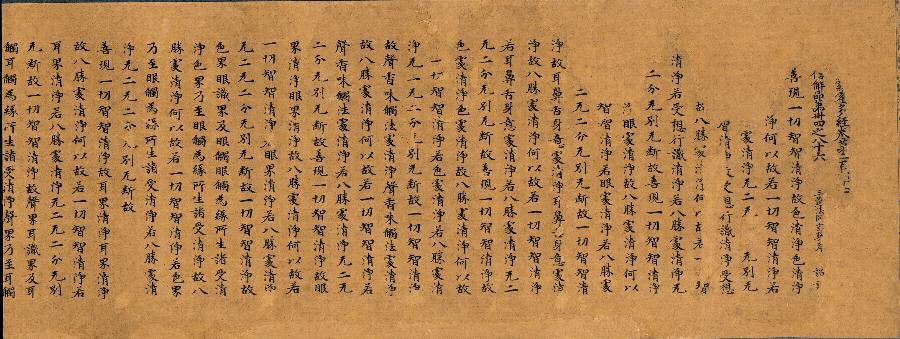 信解品第卌四之八十六 三藏法師玄奘奉 詔譯
善現一切智智清淨故色清淨色清
淨何以故若一切智智清淨若
處清淨无二无 无別无
受想行識清淨受想
故八勝處清淨何以故若一切智
清淨若受想行識清淨若八勝處清淨无
二分无別无斷故善現一切智智清淨
眼處清淨故八勝處清淨何以
智智清淨若眼處清淨若八勝處
二无二分无別无斷故一切智智清
淨故耳鼻舌身意處清淨耳鼻舌身意處清
淨故八勝處清淨何以故若一切智智清淨
若耳鼻舌身意處清淨若八勝處清淨无二
无二分无別无斷故善現一切智智清淨故
色處清淨色處清淨故八勝處清淨何以故
一切智智清淨若色處清淨若八勝處清
淨无二无二分无別无斷故一切智智清淨
故聲香味觸法處清淨聲香味觸法處清淨
故八勝處清淨何以故若一切智智清淨若
聲香味觸法處清淨若八勝處清淨无二无
二分无別无斷故善現一切智智清淨故眼
界清淨眼界清淨故八勝處清淨何以故若
一切智智清淨若眼界清淨若八勝處清淨
无二无二分无別无斷故一切智智清淨故
色界眼識界及眼觸眼觸為緣所生諸受清
淨色界乃至眼觸為緣所生諸受清淨故八
勝處清淨何以故若一切智智清淨若色界
乃至眼觸為緣所生諸受清淨若八勝處清
淨无二无二分无別无斷故
善現一切智智清淨故耳界清淨耳界清淨
故八勝處清淨何以故若一切智智清淨若
耳界清淨若八勝處清淨无二无二分无別
无斷故一切智智清淨故聲界耳識界及耳
觸耳觸為緣所生諸受清淨聲界乃至耳觸